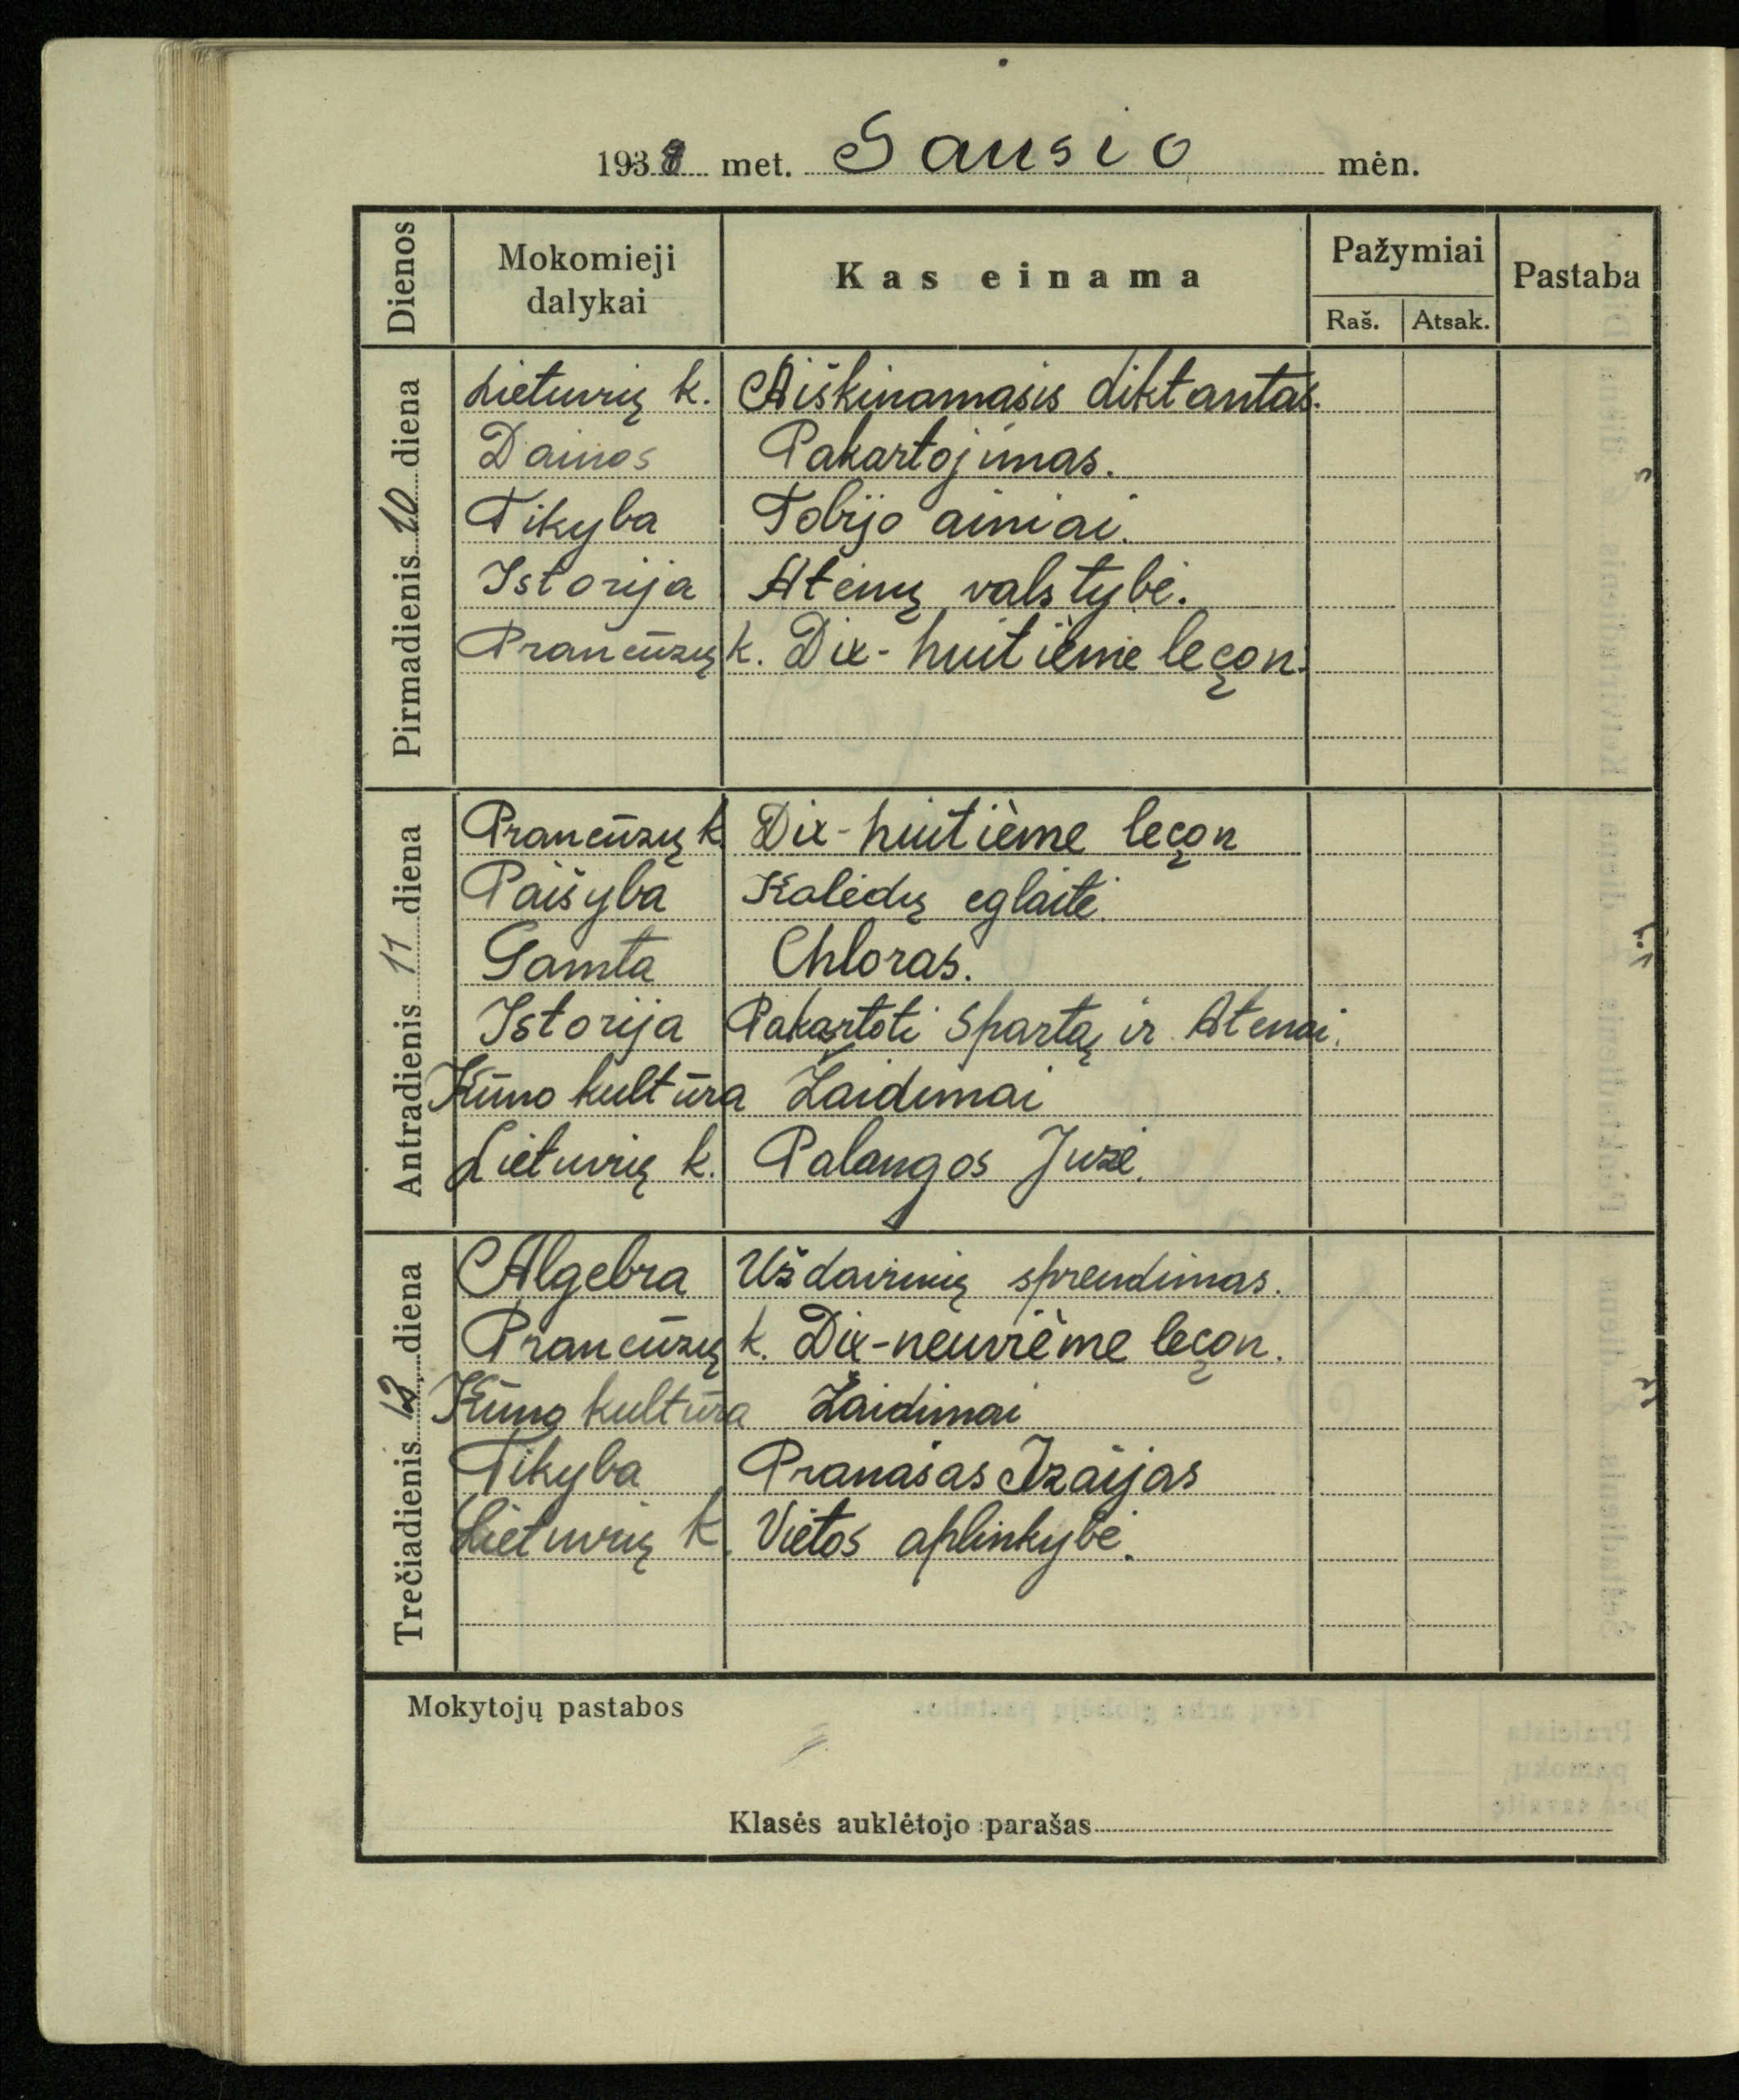 1938 met. Sausio mėn.
Dienos Mokomieji dalykai Kas einama Pažymiai Pastaba
Raš. Atsak.
Pirmadienis 10 diena
Lietuvių k. Aiškinamasis diktantas.
Dainos Pakartojimas.
Tikyba Tobijo ainiai.
Istorija Atėnų valstybė.
Prancūzų k. Dix-huitième leçon.
Antradienis 11 diena
Prancūzų k. Dix-huitième leçon
Paišyba Kalėdų eglaitė.
Gamta Chloras.
Istorija Pakartoti Spartą ir Atenai.
Kūno kultūra Žaidimai
Lietuvių k. Palangos Juzė.
Trečiadienis 12 diena
Algebra Uždavinių sprendimas.
Prancūzų k. Dix-neuvième leçon.
Kūno kultūra Žaidimai
Tikyba Pranašas Izaijas
Lietuvių k. Vietos aplinkybė.
Mokytojų pastabos
Klasės auklėtojo parašas